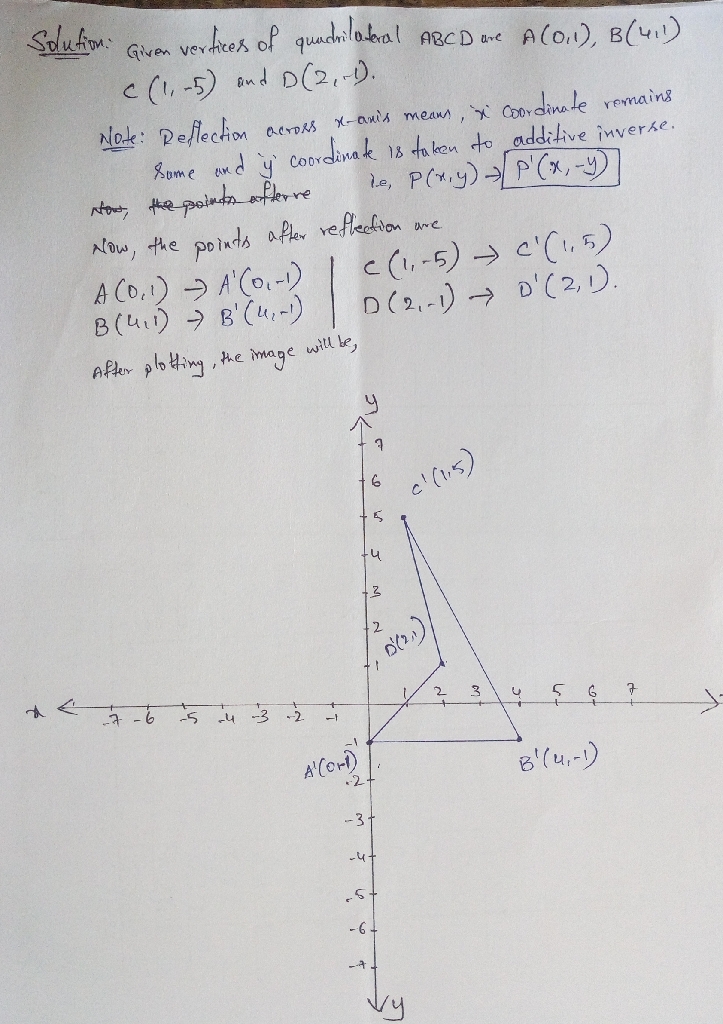 Solution: Given vertices of quadrilateral ABCD are A(0,1), B(4,1)
C(1,-5) and D(2,-1).
Note: Reflection across x-axis means, 'x' coordinate remains
same and 'y' coordinate is taken to additive inverse.
ie, P(x,y) → P'(x,-y)
Now, the points after re
Now, the points after reflection are
A(0,1) → A'(0,-1) | C(1,-5) → C'(1,5)
B(4,1) → B'(4,-1) | D(2,-1) → D'(2,1).
After plotting, the image will be,
y
7
6
C'(1,5)
5
4
3
2
D'(2,1)
1
x -7 -6 -5 -4 -3 -2 -1 1 2 3 4 5 6 7
-1
A'(0,-1) B'(4,-1)
-2
-3
-4
-5
-6
-7
y